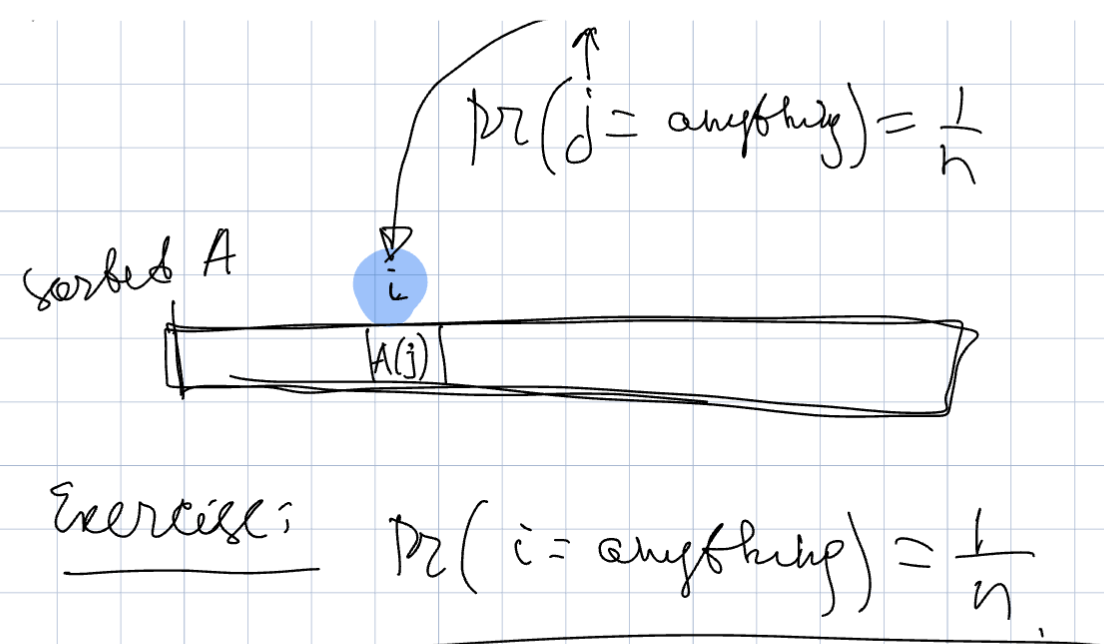 Pr(j = anything) = 1/n
sorted A
i
A(j)
Exercise: Pr(i = anything) = 1/n.